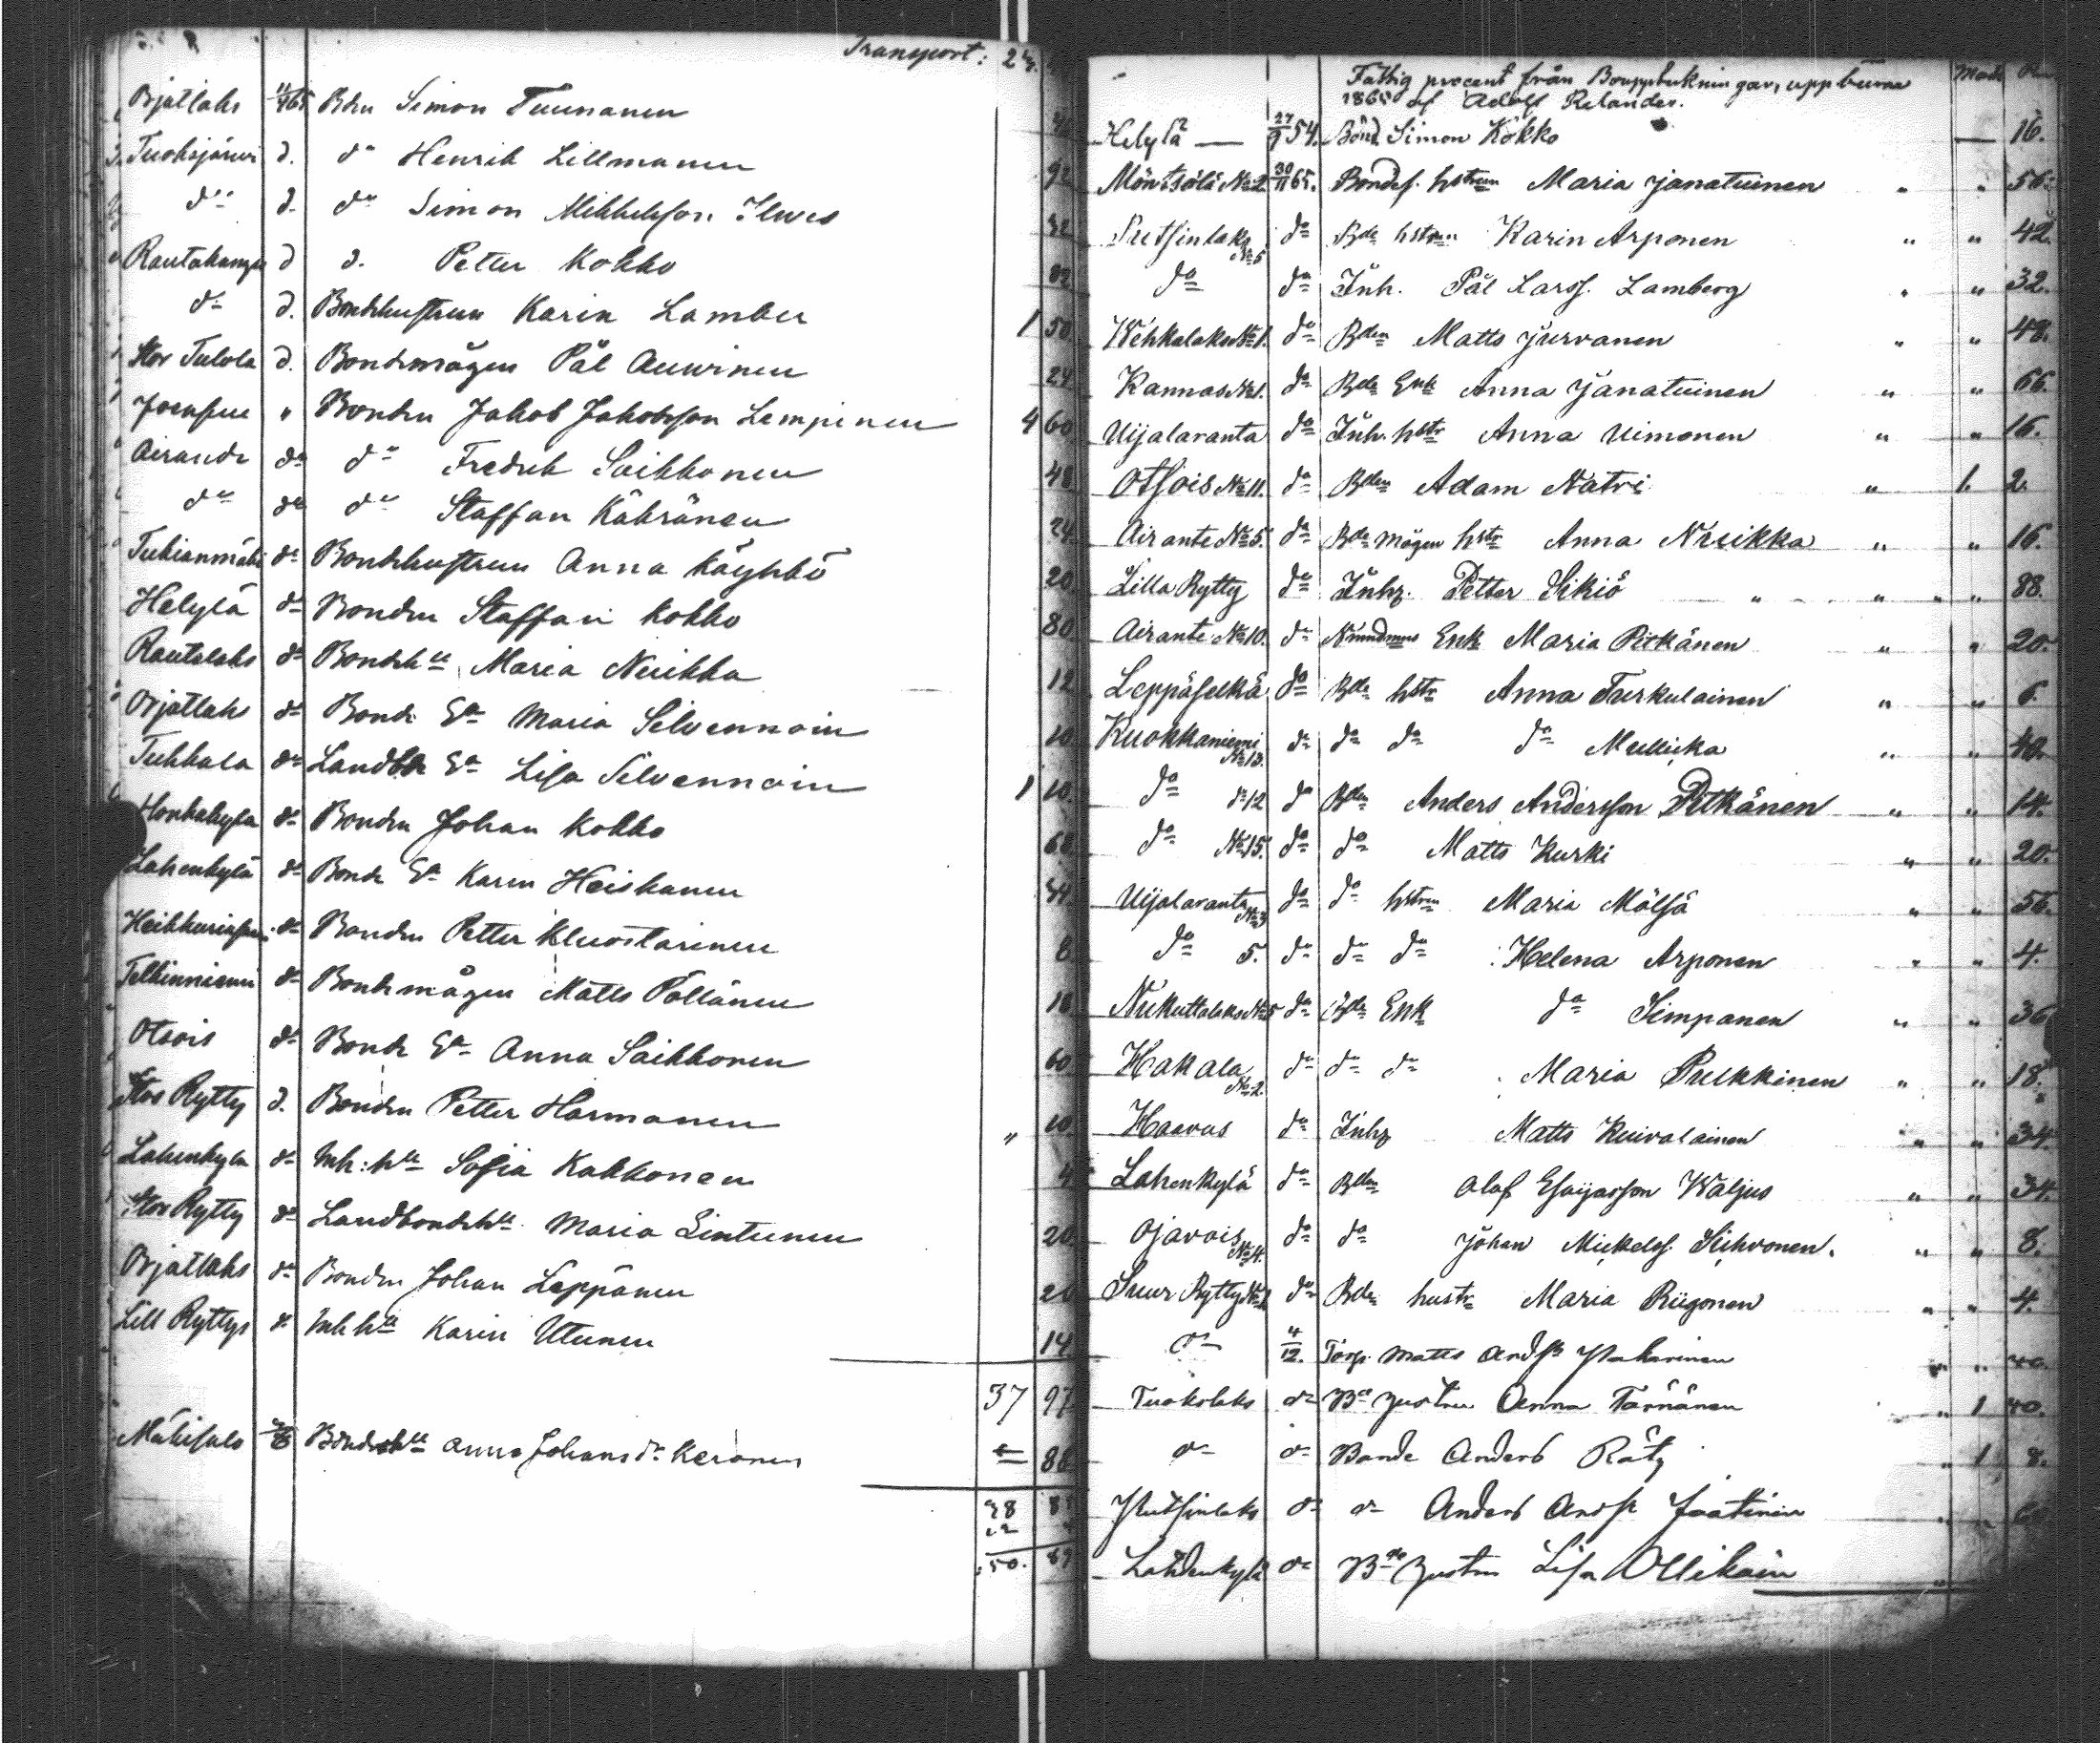 Transport: 2
Orjatlaks 11/4 65 Bdn Simon Tuunanen
Tuoksjärwi d. do Henrik Lillmanen 92
do d. do Simon Mikkelsson Ilwes 32
Rautakangas d d. Petter Kokko 82
do d. Bondehustrun Karin Lamber 1 50
Stor Tulola d. Bondemågen Pål Auwinen 24
Joensuu " Bonden Jakob Jakobsson Lempinen 4 60
Airande do do Fredrik Saikkonen 48
do do do Staffan Kähränen 24
Tukianmäki do Bondehustrun Anna Käyhkö 20
Helylä do Bonden Staffan Kokko 80
Rautalaks do Bondehu Maria Nuikka 12
Orjatlaks do Bonde Ea Maria Silvennoin 10
Tuhkala do Landbde Ea Lisa Silvennoin 1 10
Honkakylä do Bonden Johan Kokko 68
Lahenkylä do Bonde Ea Karin Heiskanen 34
do Bonden Petter Kluostarinen 8
Telkinniemi do Bondemågen Matts Pöllänen 16
Otsois do Bonde Ea Anna Saikkonen 60
Stor Rytty d. Bonden Petter Harmanen " 10
Lahenkylä do Inh: hu Sofia Kakkonen 4
Stor Rytty do Landbondehu Maria Lintunen 20
Orjatlaks do Bonden Johan Leppänen 20
Lill Ryttys do Inh hu Karin Utunen 14
37 97
Mäkisalo Bondehu Anna Johansdr Keronen 88
38
50. 89
Fattig procent från Bouppteckningar, uppburna
1865 af Adolf Relander.
Helylä — 27/9 54. Bond. Simon Kokko — 16.
Möntsölä No 2 30/11 65. Bondes. hstrun Maria Janatuinen " " 56.
Putsinlaks No 5 do Bde hstrun Karin Arponen " " 42.
do do Inh. Pål Larss. Lamberg " " 32.
Wehkalaks No 1. do Bden Matts Jurvanen " " 48.
Kannas No 1. do Bde Enk Anna Janatuinen " " 66.
Uijalaranta do Inh. hstr Anna Uimonen " " 16.
Otsois No 11. do Bden Adam Natri " 1. 2.
Airante No 5. do Bde mågen hstr Anna Nuikka " " 16.
Lilla Rytty do Inhz. Petter Sikiö " " " " 88.
Airante No 10. do Nämndmns Enk Maria Pitkänen " " 20.
Leppäselkä do Bde hstr Anna Turkulainen " " 6.
Kuokkaniemi No 13. do do do do Mullikka " "
do do 12 do Bden Anders Andersson Pitkänen " " 14.
do No 15. do do Matts Kurki " " 20.
Uijalaranta No 3 do do hstrun Maria Mölsä " " 56.
do 5. do do do Helena Arponen " " 4.
Nukuttalaks No 5 do Bde Enk do Simpanen " " 36
Hakala No 2. do do do Maria Pulkkinen " " 18.
Haavus do Inhz Matts Kuivalainen " " 34.
Lahenkylä do Bden Olof Esaijasson Waljus " " 34.
Ojavois No 4. do do Johan Mickelss. Sihvonen. " " 8.
Suur Rytty No 1 do Bde hustr Maria Riigonen " " 4.
do 4/12. Torp. Matts Andss " "
Tuokslaks do Bde hustru Anna Tarnänen " 1 40.
do do Bonde Anders Räty " 1 8.
Putsinlaks do do Anders Andss Jaatinin " "
Lahdenkylä do Bde hustru Lisa Ollikain "